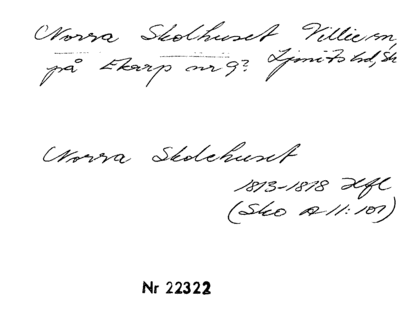 Norra Skolhuset Villie sn,
på Ekarp nr 9? Ljunits hd, Sk
Norra Skolehuset
1873-1878 Hfl
(Sko A II:107)
Nr 22322